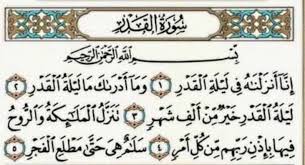 سُورَةُ القَدْرِ
بِسْمِ اللَّهِ الرَّحْمَٰنِ الرَّحِيمِ
إِنَّا أَنزَلْنَٰهُ فِي لَيْلَةِ الْقَدْرِ ١ وَمَا أَدْرَىٰكَ مَا لَيْلَةُ الْقَدْرِ ٢
لَيْلَةُ الْقَدْرِ خَيْرٌ مِّنْ أَلْفِ شَهْرٍ ٣ تَنَزَّلُ الْمَلَٰٓئِكَةُ وَالرُّوحُ
فِيهَا بِإِذْنِ رَبِّهِم مِّن كُلِّ أَمْرٍ ٤ سَلَٰمٌ هِيَ حَتَّىٰ مَطْلَعِ الْفَجْرِ ٥